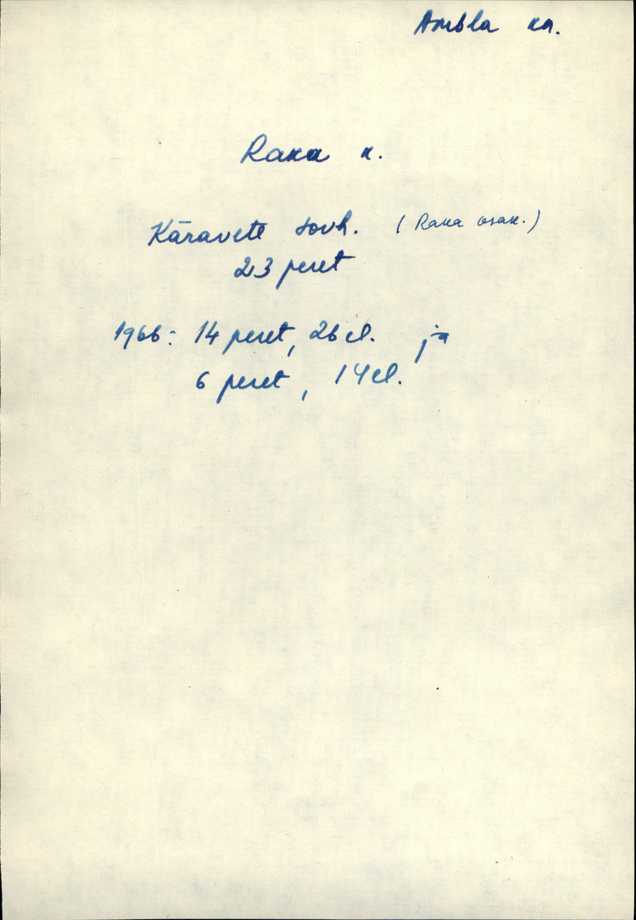 Ambla kn.
Raka k.
Käravete sovh. (Raka osak.)
23 peret
1966: 14 peret, 26 el. ja
6 peret, 14 el.